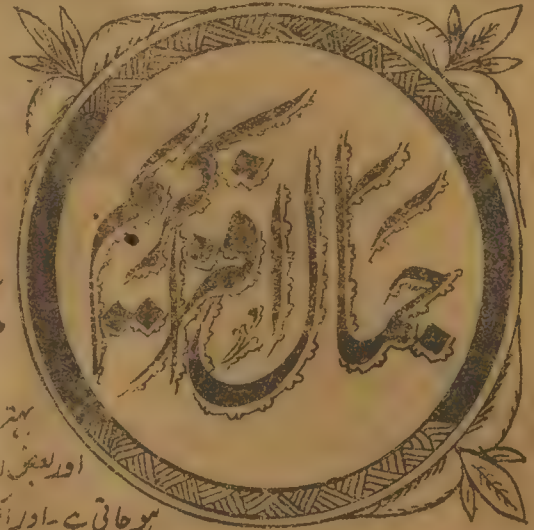 جمال افزا کریم
بہتر
اور بعض
ہو جاتی ہے۔ اور